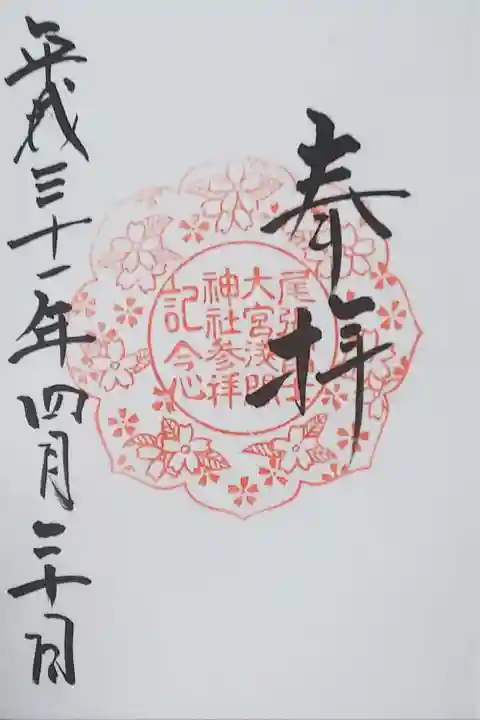 奉拝
尾張冨士
大宮浅間
神社参拝
記念
平成三十一年四月三十日